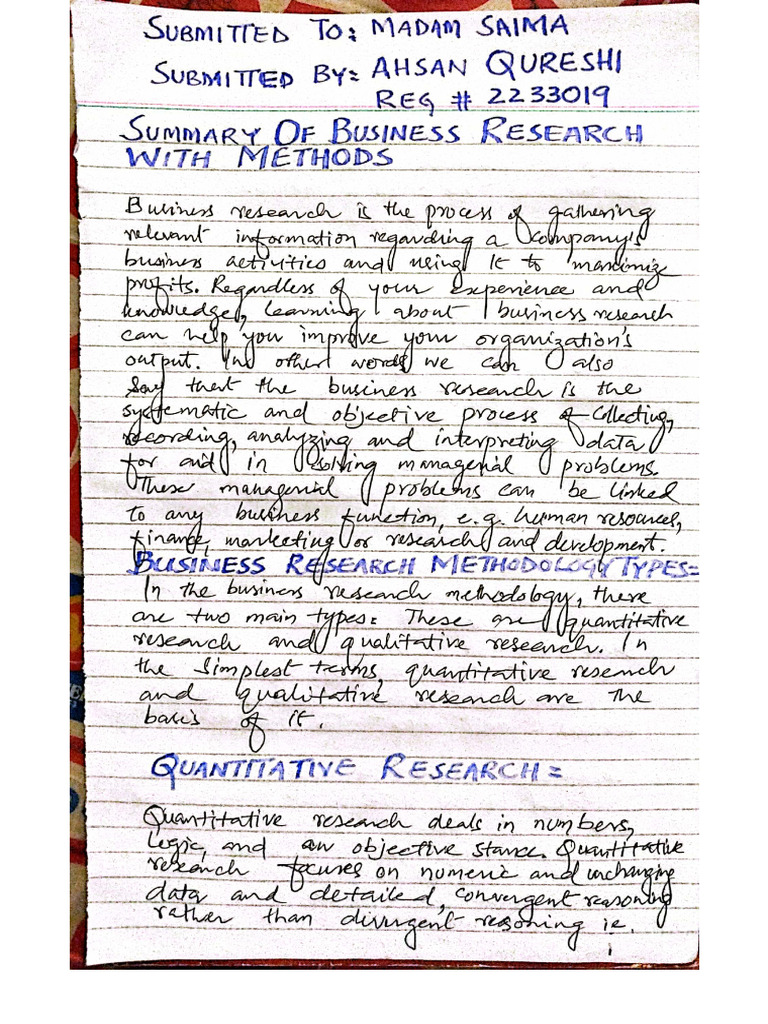 SUBMITTED TO: MADAM SAIMA
SUBMITTED BY: AHSAN QURESHI
REG # 2233019
SUMMARY OF BUSINESS RESEARCH
WITH METHODS
Business research is the process of gathering
relevant information regarding a company's
business activities and using it to maximize
profits. Regardless of your experience and
knowledge, learning about business research
can help you improve your organization's
output. In other words we can also
Say that the business research is the
systematic and objective process of Collecting,
recording, analyzing and interpreting data
for aid in solving managerial problems.
These managerial problems can be linked
to any business function, e.g. human resources,
finance, marketing or research and development.
BUSINESS RESEARCH METHODOLOGY TYPES=
In the business research methodology, there
are two main types: These are quantitative
research and qualitative research. In
the Simplest terms, quantitative research
and qualitative research are the
basis of it.
QUANTITATIVE RESEARCH=
Quantitative research deals in numbers,
Logic, and an objective stance. Quantitative
research focuses on numeric and unchanging
data and detailed, convergent reasoning
rather than divergent reasoning ie.